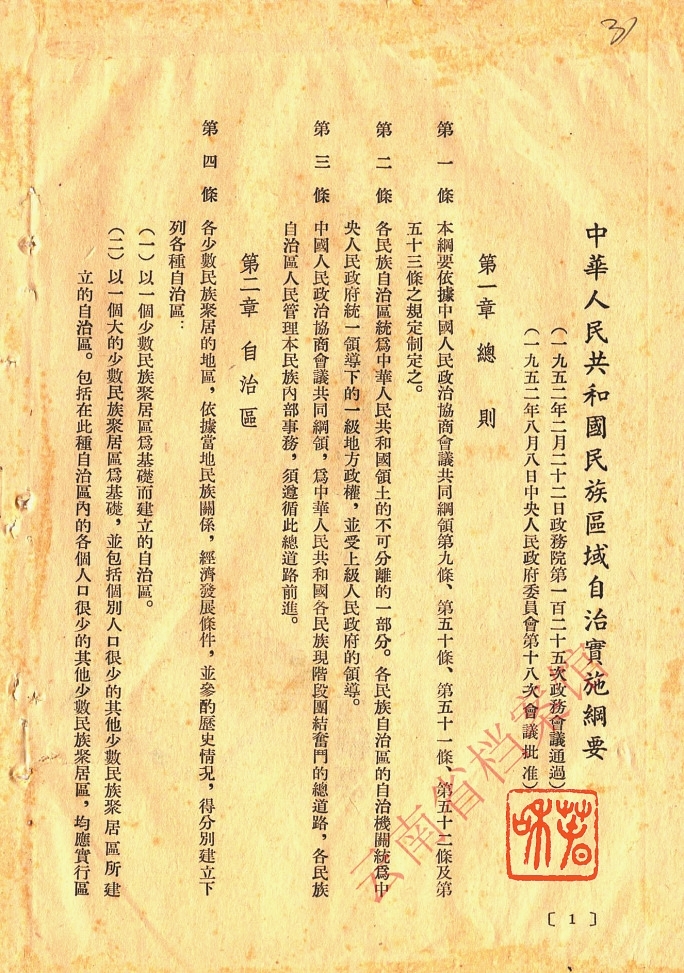 31
中華人民共和國民族區域自治實施綱要
(一九五二年二月二十二日政務院第一百二十五次政務會議通過)
(一九五二年八月八日中央人民政府委員會第十八次會議批准)
第一章 總則
第一條 本綱要依據中國人民政治協商會議共同綱領第九條、第五十條、第五十一條、第五十二條及第
五十三條之規定制定之。
第二條 各民族自治區統爲中華人民共和國領土的不可分離的一部分。各民族自治區的自治機關統爲中
央人民政府統一領導下的一級地方政權,並受上級人民政府的領導。
第三條 中國人民政治協商會議共同綱領,爲中華人民共和國各民族現階段團結奮鬥的總道路,各民族
自治區人民管理本民族內部事務,須遵循此總道路前進。
第二章 自治區
第四條 各少數民族聚居的地區,依據當地民族關係,經濟發展條件,並參酌歷史情况,得分別建立下
列各種自治區:
(一)以一個少數民族聚居區爲基礎而建立的自治區。
(二)以一個大的少數民族聚居區爲基礎,並包括個別人口很少的其他少數民族聚居區所建
立的自治區。包括在此種自治區內的各個人口很少的其他少數民族聚居區,均應實行區
云南省档案馆
〔1〕